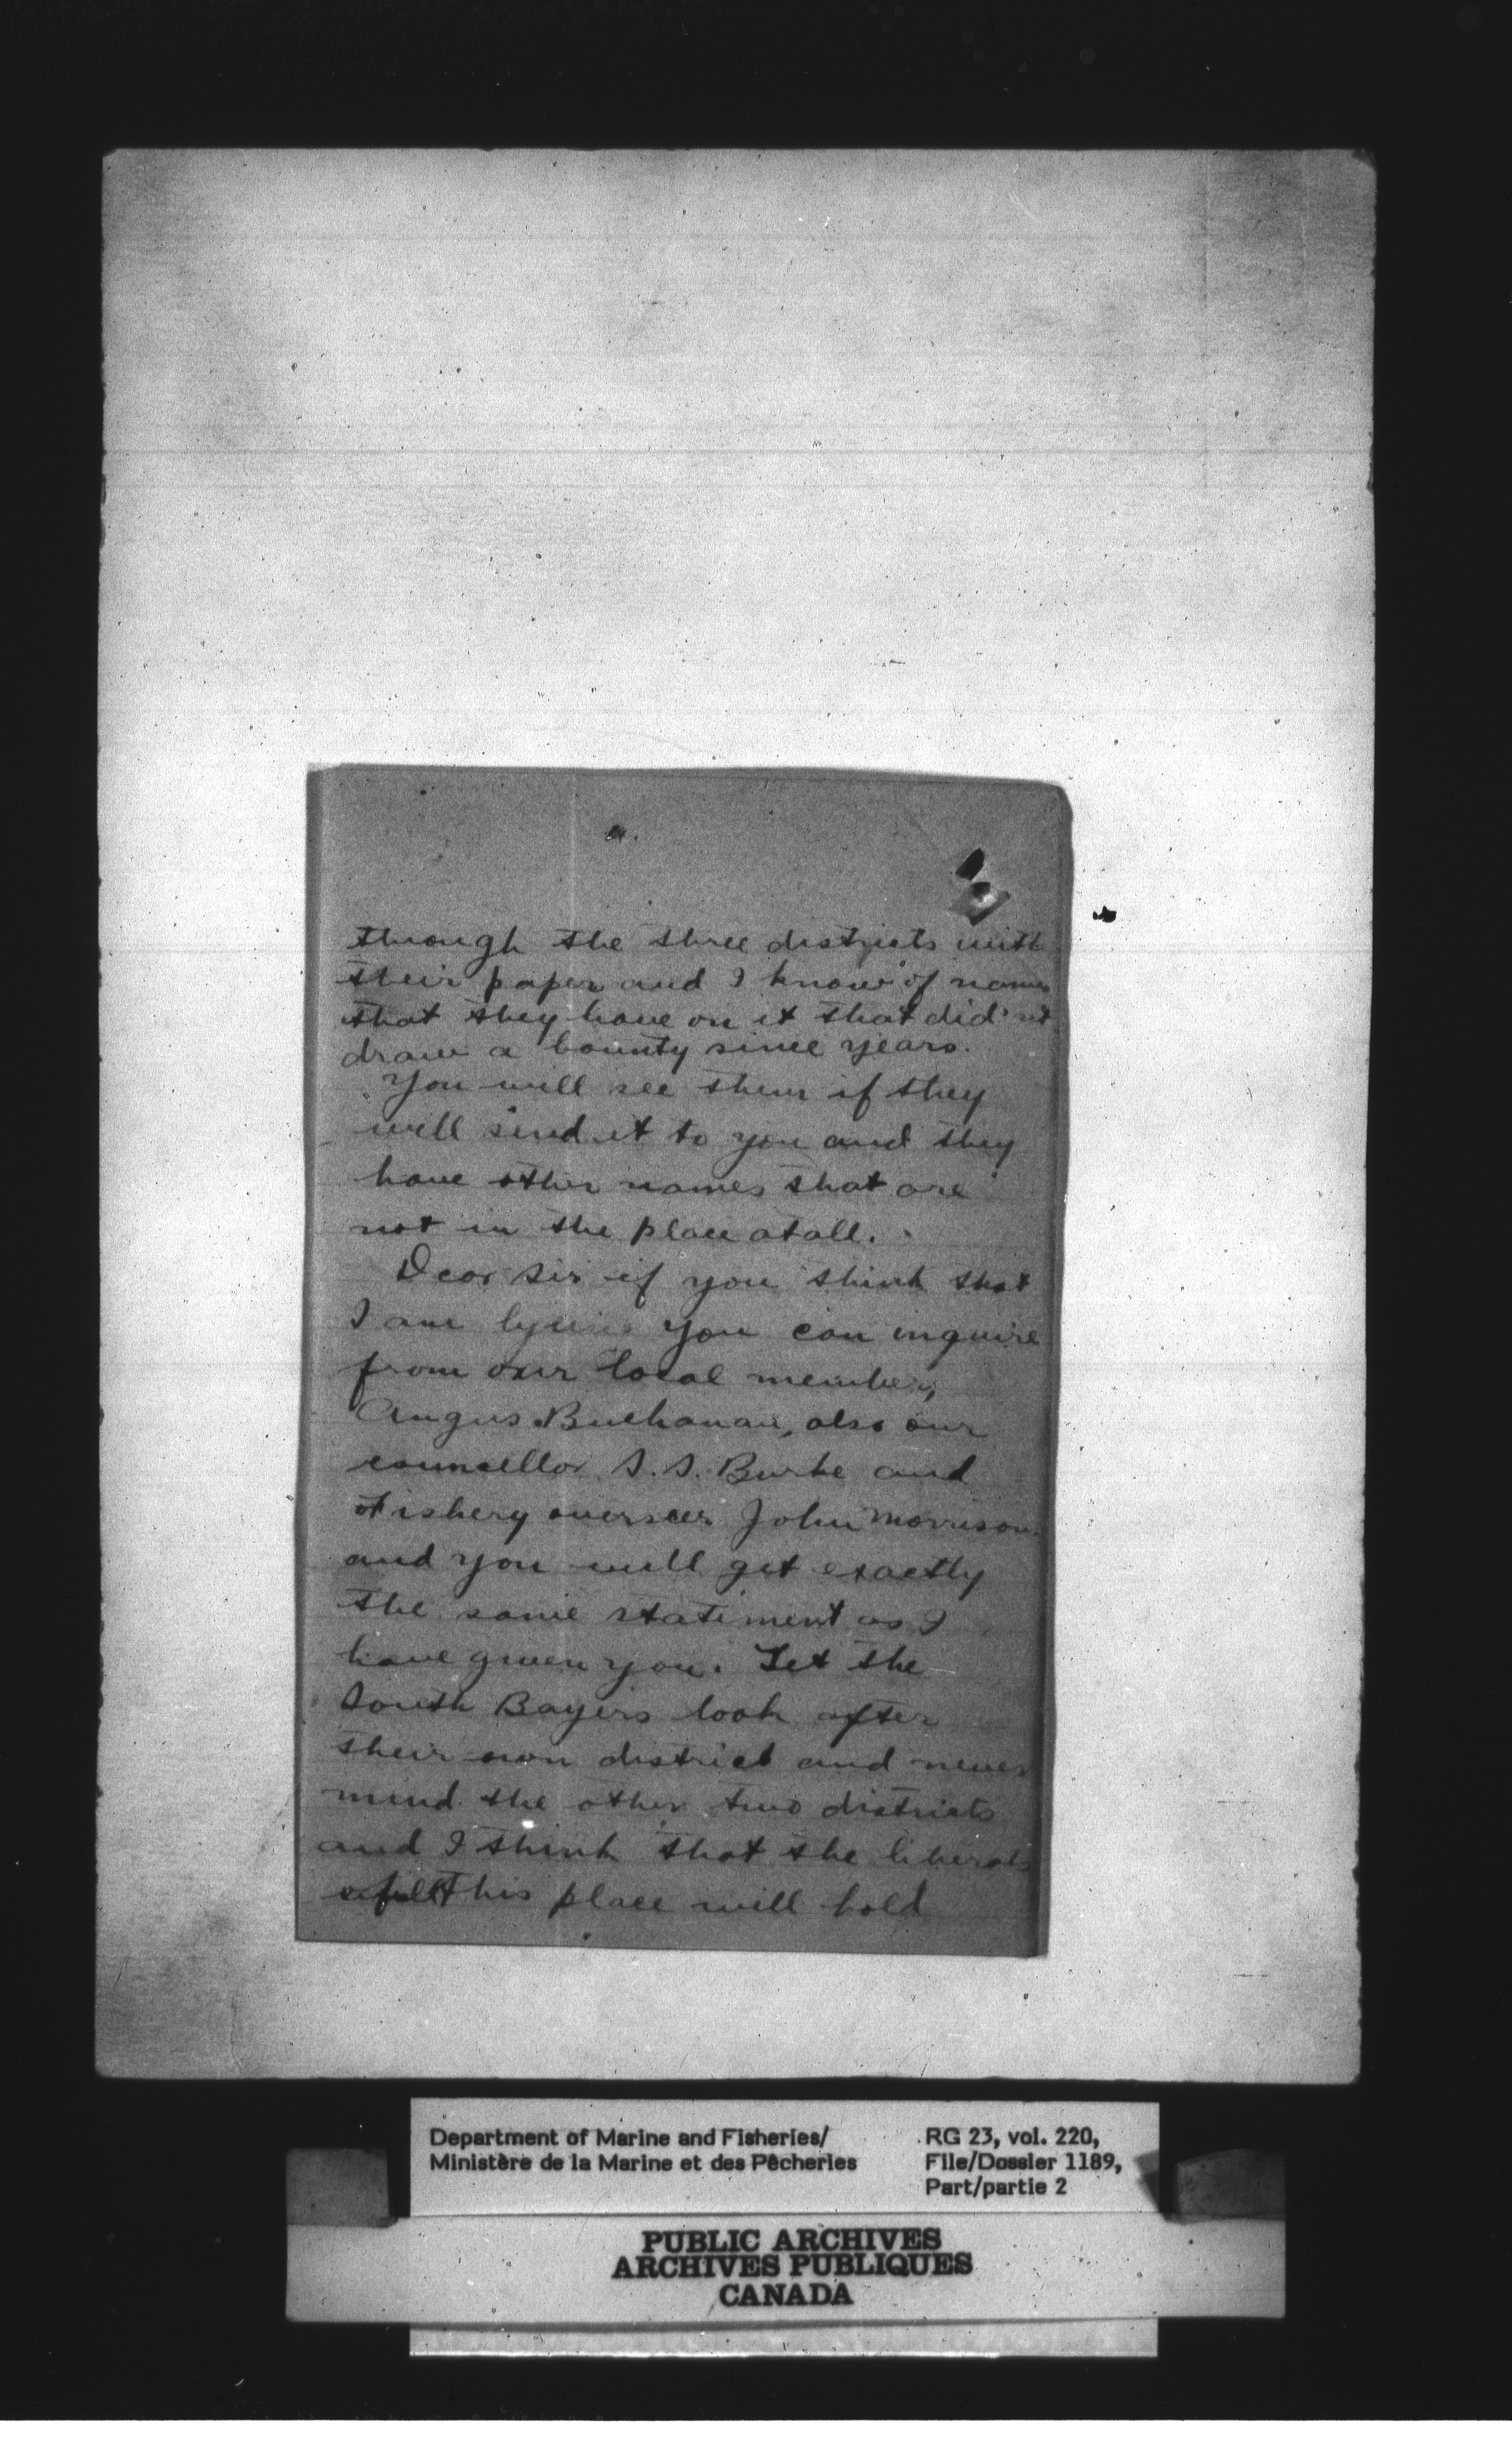 through the three districts with
their paper and I know of names
that they have on it that did'nt
draw a bounty since years.
You will see them if they
will send it to you and they
have other names that are
not in the place atall.
Dear Sir if you think that
I am lying you can inquire
from our local member,
Angus Buchanan, also our
councellor S. S. Burke and
Fishery overseer John Morrison
and you will get exactly
the same statement as I
have given you. Let the
South Bayers look after
their own district and never
mind the other two districts
and I think that the liberals
this place will hold
Department of Marine and Fisheries/
Ministère de la Marine et des Pêcheries
RG 23, vol. 220,
File/Dossier 1189,
Part/partie 2
PUBLIC ARCHIVES
ARCHIVES PUBLIQUES
CANADA